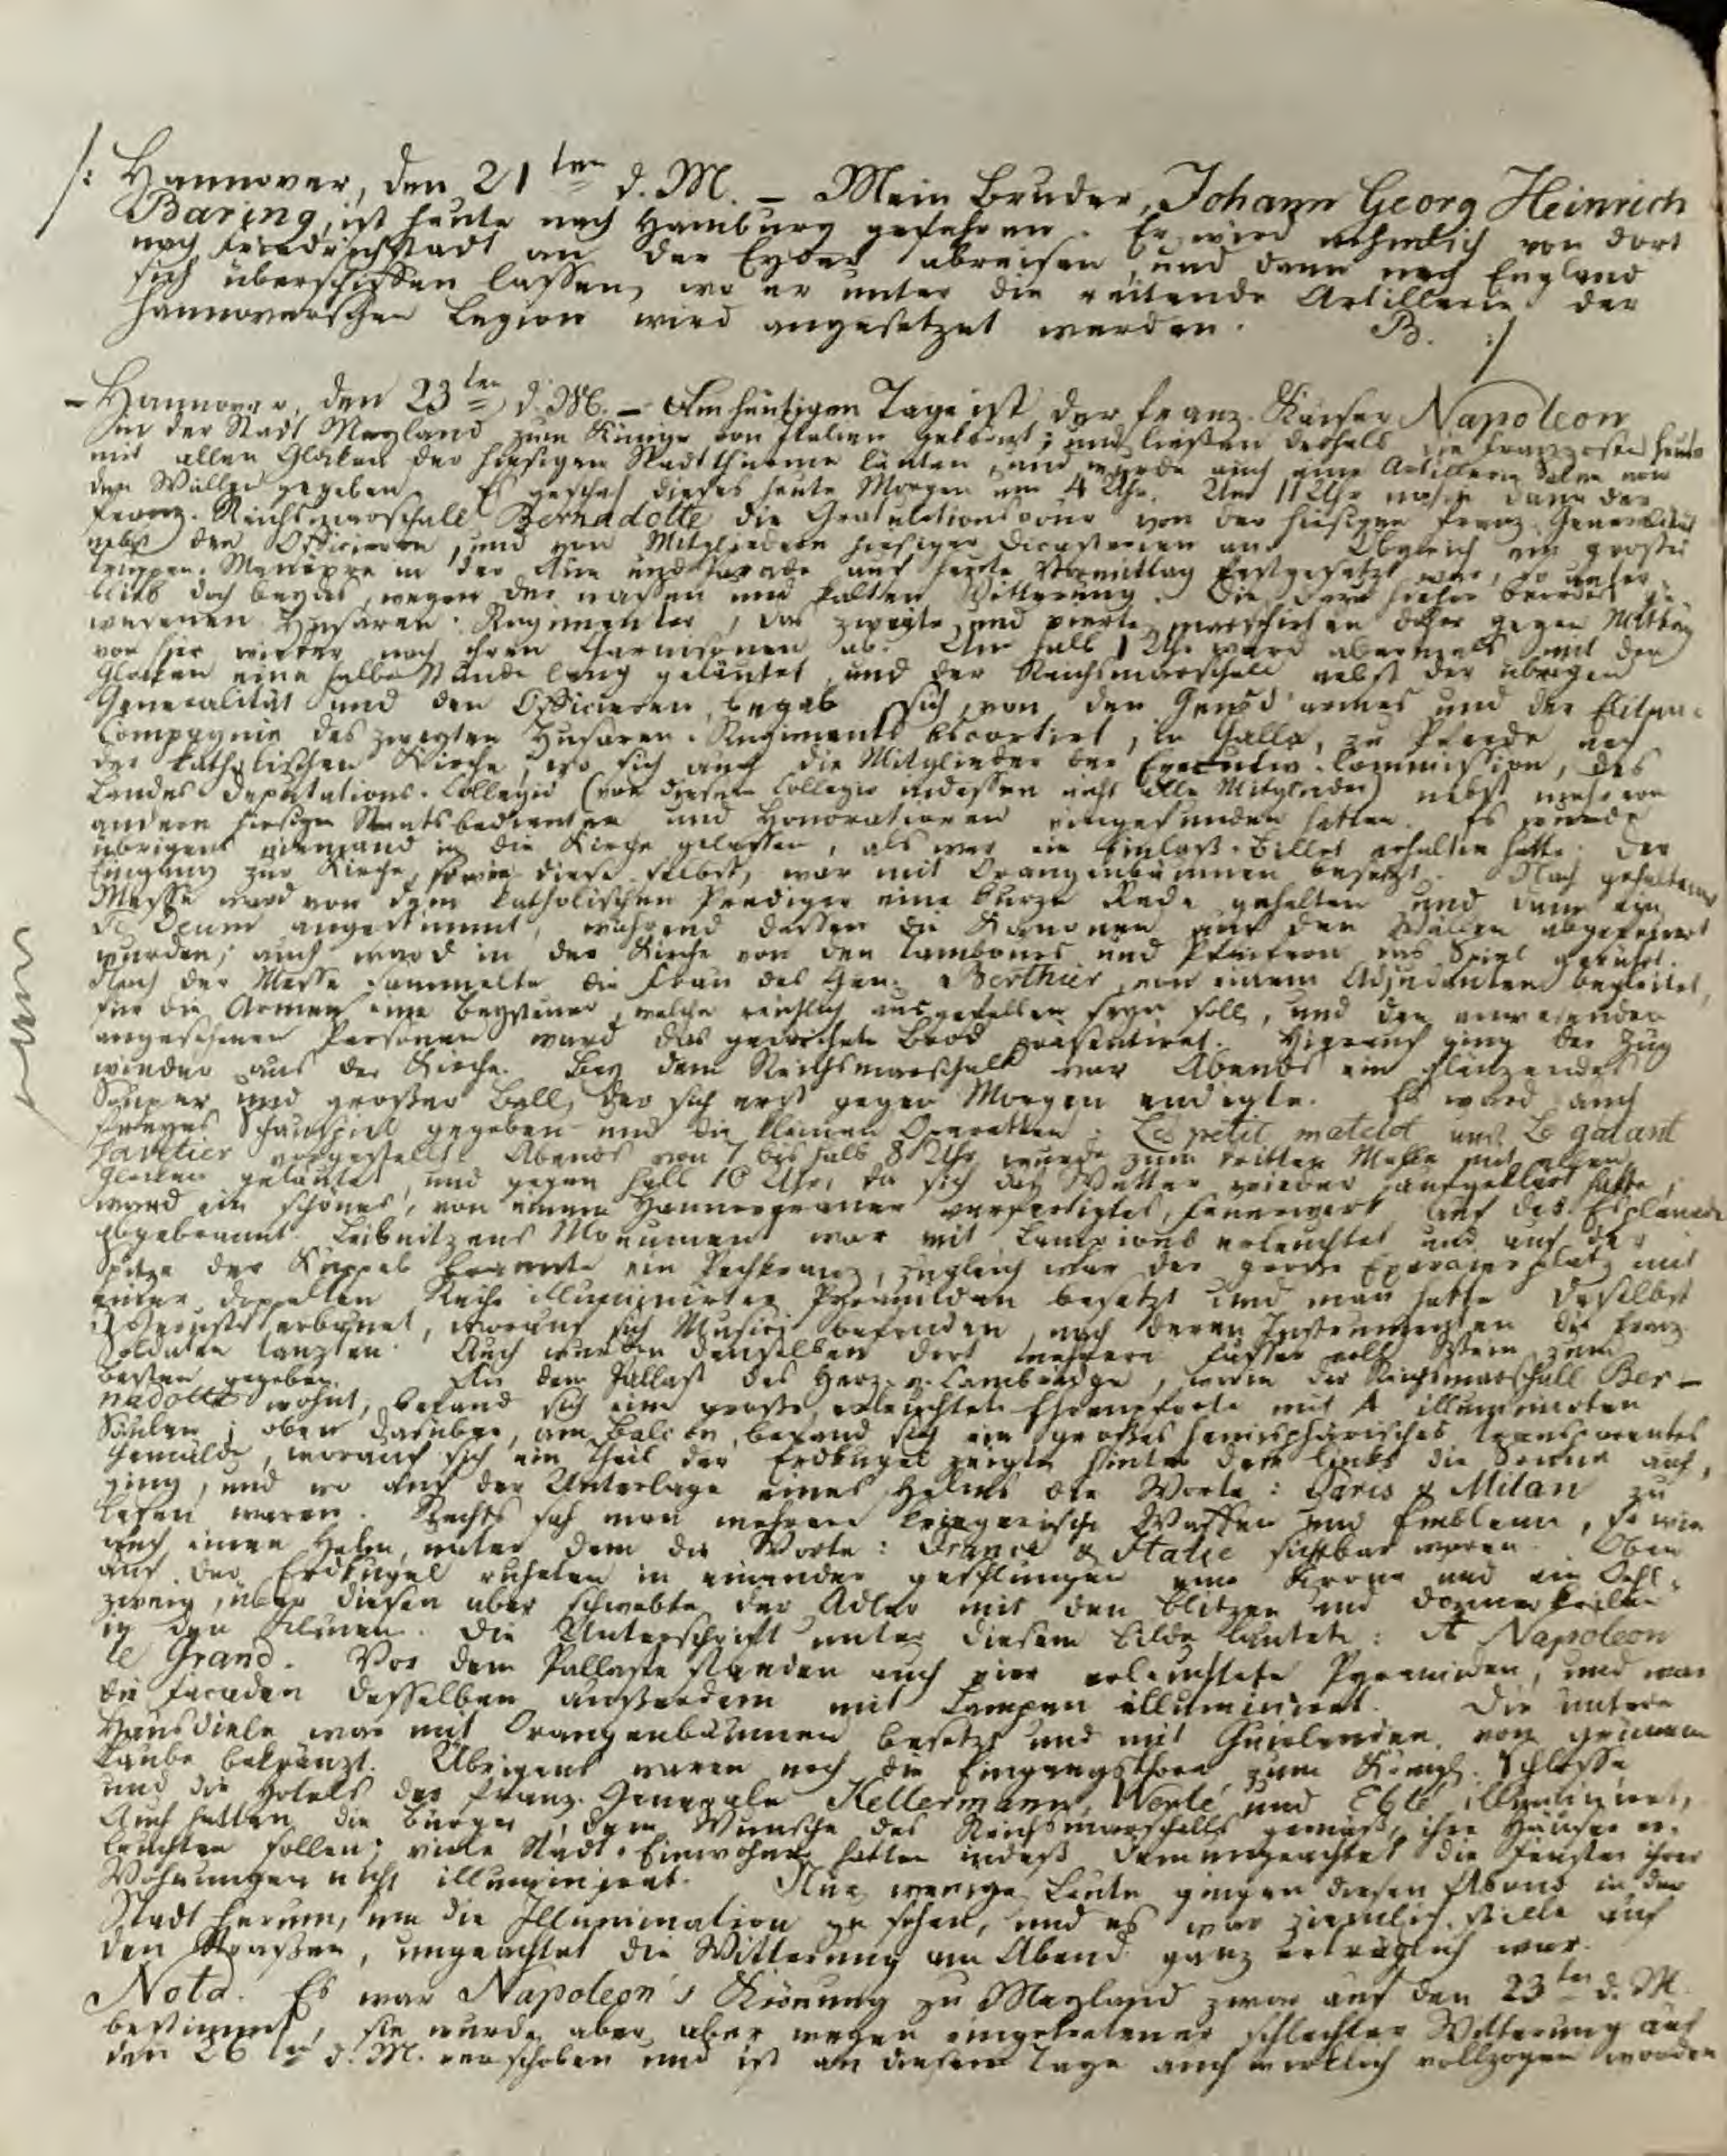 /: Hannover, den 21ten d. M. – Mein Bruder, Johann Georg Heinrich
Baring, ist heute nach Hamburg gefahren. Er wird nehmlich von dort
nach Friedrichstadt an der Eyder abreisen, und dann nach England
sich überschiffen lassen, wo er unter die reitende Artillerie der
Hannoverschen Legion wird angesetzet werden. B. :/
– Hannover, den 23ten d. M. – Am heutigen Tage ist der franz. Kaiser Napoleon
in der Stadt Mayland zum Könige von Italien gekrönt; und ließen deshalb die Franzosen heute
mit allen Glocken der hiesigen Stadtthürme läuten, und wurde auch eine Artillerie Salve von
den Wällen gegeben. Es geschah dieses heute Morgen um 4 Uhr. Um 11 Uhr nahm dann der
franz. Reichsmarschall Bernadotte die Gratulationscour von der hiesigen franz. Generalität
nebst den Officieren, und von Mitgliedern hiesiger Dicasterien an. Obgleich ein großes
Truppen-Manöver in der Aue und Parade auf heute Vormittag festgesetzt war, so unter-
blieb doch beydes, wegen der nassen und kalten Witterung. Die dazu hieher beordert ge-
wesenen Husaren-Regimenter, das zweyte und vierte, marschirten daher gegen Mittag
von hier wieder nach ihren Garnisonen ab. Um halb 1 Uhr ward abermals mit den
Glocken eine halbe Stunde lang geläutet, und der Reichsmarschall nebst der übrigen
Generalität und den Officieren, begab sich, von den Gensd'armes und der Eliten-
Compagnie des zweyten Husaren-Regiments escortirt, in Galla, zu Pferde nach
der katholischen Kirche, wo sich auch die Mitglieder der Executiv-Commission, des
Landes-Deputations-Collegii (von diesem Collegio indessen nicht alle Mitglieder) nebst mehreren
andern hiesigen Staatsbedienten und Honoratioren eingefunden hatten. Es wurde
übrigens niemand in die Kirche gelassen, als wer ein Einlaß-Billet erhalten hatte. Der
Eingang zur Kirche, sowie diese selbst, war mit Orangenbäumen besetzt. Nach gehaltener
Messe ward von dem katholischen Prediger eine kurze Rede gehalten und dann ein
Te Deum angestimmt, während dessen die Kanonen auf den Wällen abgefeuert
wurden; auch ward in der Kirche von den Tambours und Pfeifern das Spiel gerührt.
Nach der Messe sammelte die Frau des Gen. Berthier, von einem Adjudanten begleitet,
für die Armen eine Beysteuer, welche reichlich ausgefallen seyn soll, und den anwesenden
angesehenen Personen ward das geweihete Brod präsentiret. Hierauf ging der Zug
wieder aus der Kirche. Bey dem Reichsmarschall war Abends ein glänzendes
Souper und großer Ball, der sich erst gegen Morgen endigte. Es ward auch
freyes Schauspiel gegeben und die kleinen Operetten: Le petit matelot und Le galant
Savetier vorgestellt. Abends von 7 bis halb 8 Uhr wurde zum dritten Mahle mit allen
Glocken geläutet, und gegen halb 10 Uhr, da sich das Wetter wieder aufgeklärt hatte,
ward ein schönes, von einem Hannoveraner verfertigtes, Feuerwerk auf der Esplanade
abgebrannt. Leibnitzens Monument war mit Lampions erleuchtet und auf der
Spitze der Kuppel brannte ein Pechkranz, zugleich war der große Exercierplatz mit
einer doppelten Reihe illuminirter Pyramiden besetzt und man hatte daselbst
Gerüste erbauet, worauf sich Musici befanden, nach deren Instrumenten die franz.
Soldaten tanzten. Auch wurden denselben dort mehrere Fässer voll Wein zum
besten gegeben. An dem Pallast des Herz. v. Cambridge, worin der Reichsmarschall Ber-
nadotte wohnt, befand sich eine große, erleuchtete Ehrenpforte mit 4 illuminirten
Säulen; oben darüber, am Balcon, befand sich ein großes hemisphärisches transparentes
Gemälde, worauf sich ein Theil der Erdkugel zeigte hinter dem links die Sonne auf-
ging, und wo auf der Unterlage eines Helms die Worte: Paris & Milan zu
lesen waren. Rechts sah man mehrere kriegerische Waffen und Embleme, so wie
auch einen Helm, unter dem die Worte: France & Italie sichtbar waren. Oben
auf der Erdkugel ruheten in einander geschlungen eine Krone und ein Oehl-
zweig, über diesen aber schwebte der Adler mit den Blitzen und Donnerkeilen
in den Klauen. Die Unterschrift unter diesem Bilde lautete: A Napoleon
le Grand. Vor dem Pallaste standen auch vier erleuchtete Pyramiden, und war
die Facaden desselben außerdem mit Lampen illuminiret. Die untere
Hausdiele war mit Orangenbäumen besetzt und mit Guirlanden von grünem
Laube bekränzt. Übrigens waren noch die Eingangsthore zum Königl. Schlosse
und die Hotels der franz. Generale Kellermann, Werlé und Eblé illuminiret,
Auch hatten die Bürger, dem Wunsche des Reichsmarschalls gemäß, ihre Häuser er-
leuchten sollen; viele Stadt-Einwohner hatten indeß demungeachtet die Fenster ihrer
Wohnungen nicht illuminiret. Nur wenige Leute gingen diesen Abend in der
Stadt herum, um die Illumination zu sehen, und es war ziemlich stille auf
den Straßen, ungeachtet die Witterung am Abend ganz erträglich war.
Nota. Es war Napoleon's Krönung zu Mayland zwar auf den 23ten d. M.
bestimmt, sie wurde aber aber wegen eingetretener schlechter Witterung auf
den 26ten d. M. verschoben und ist an diesem Tage auch wirklich vollzogen worden